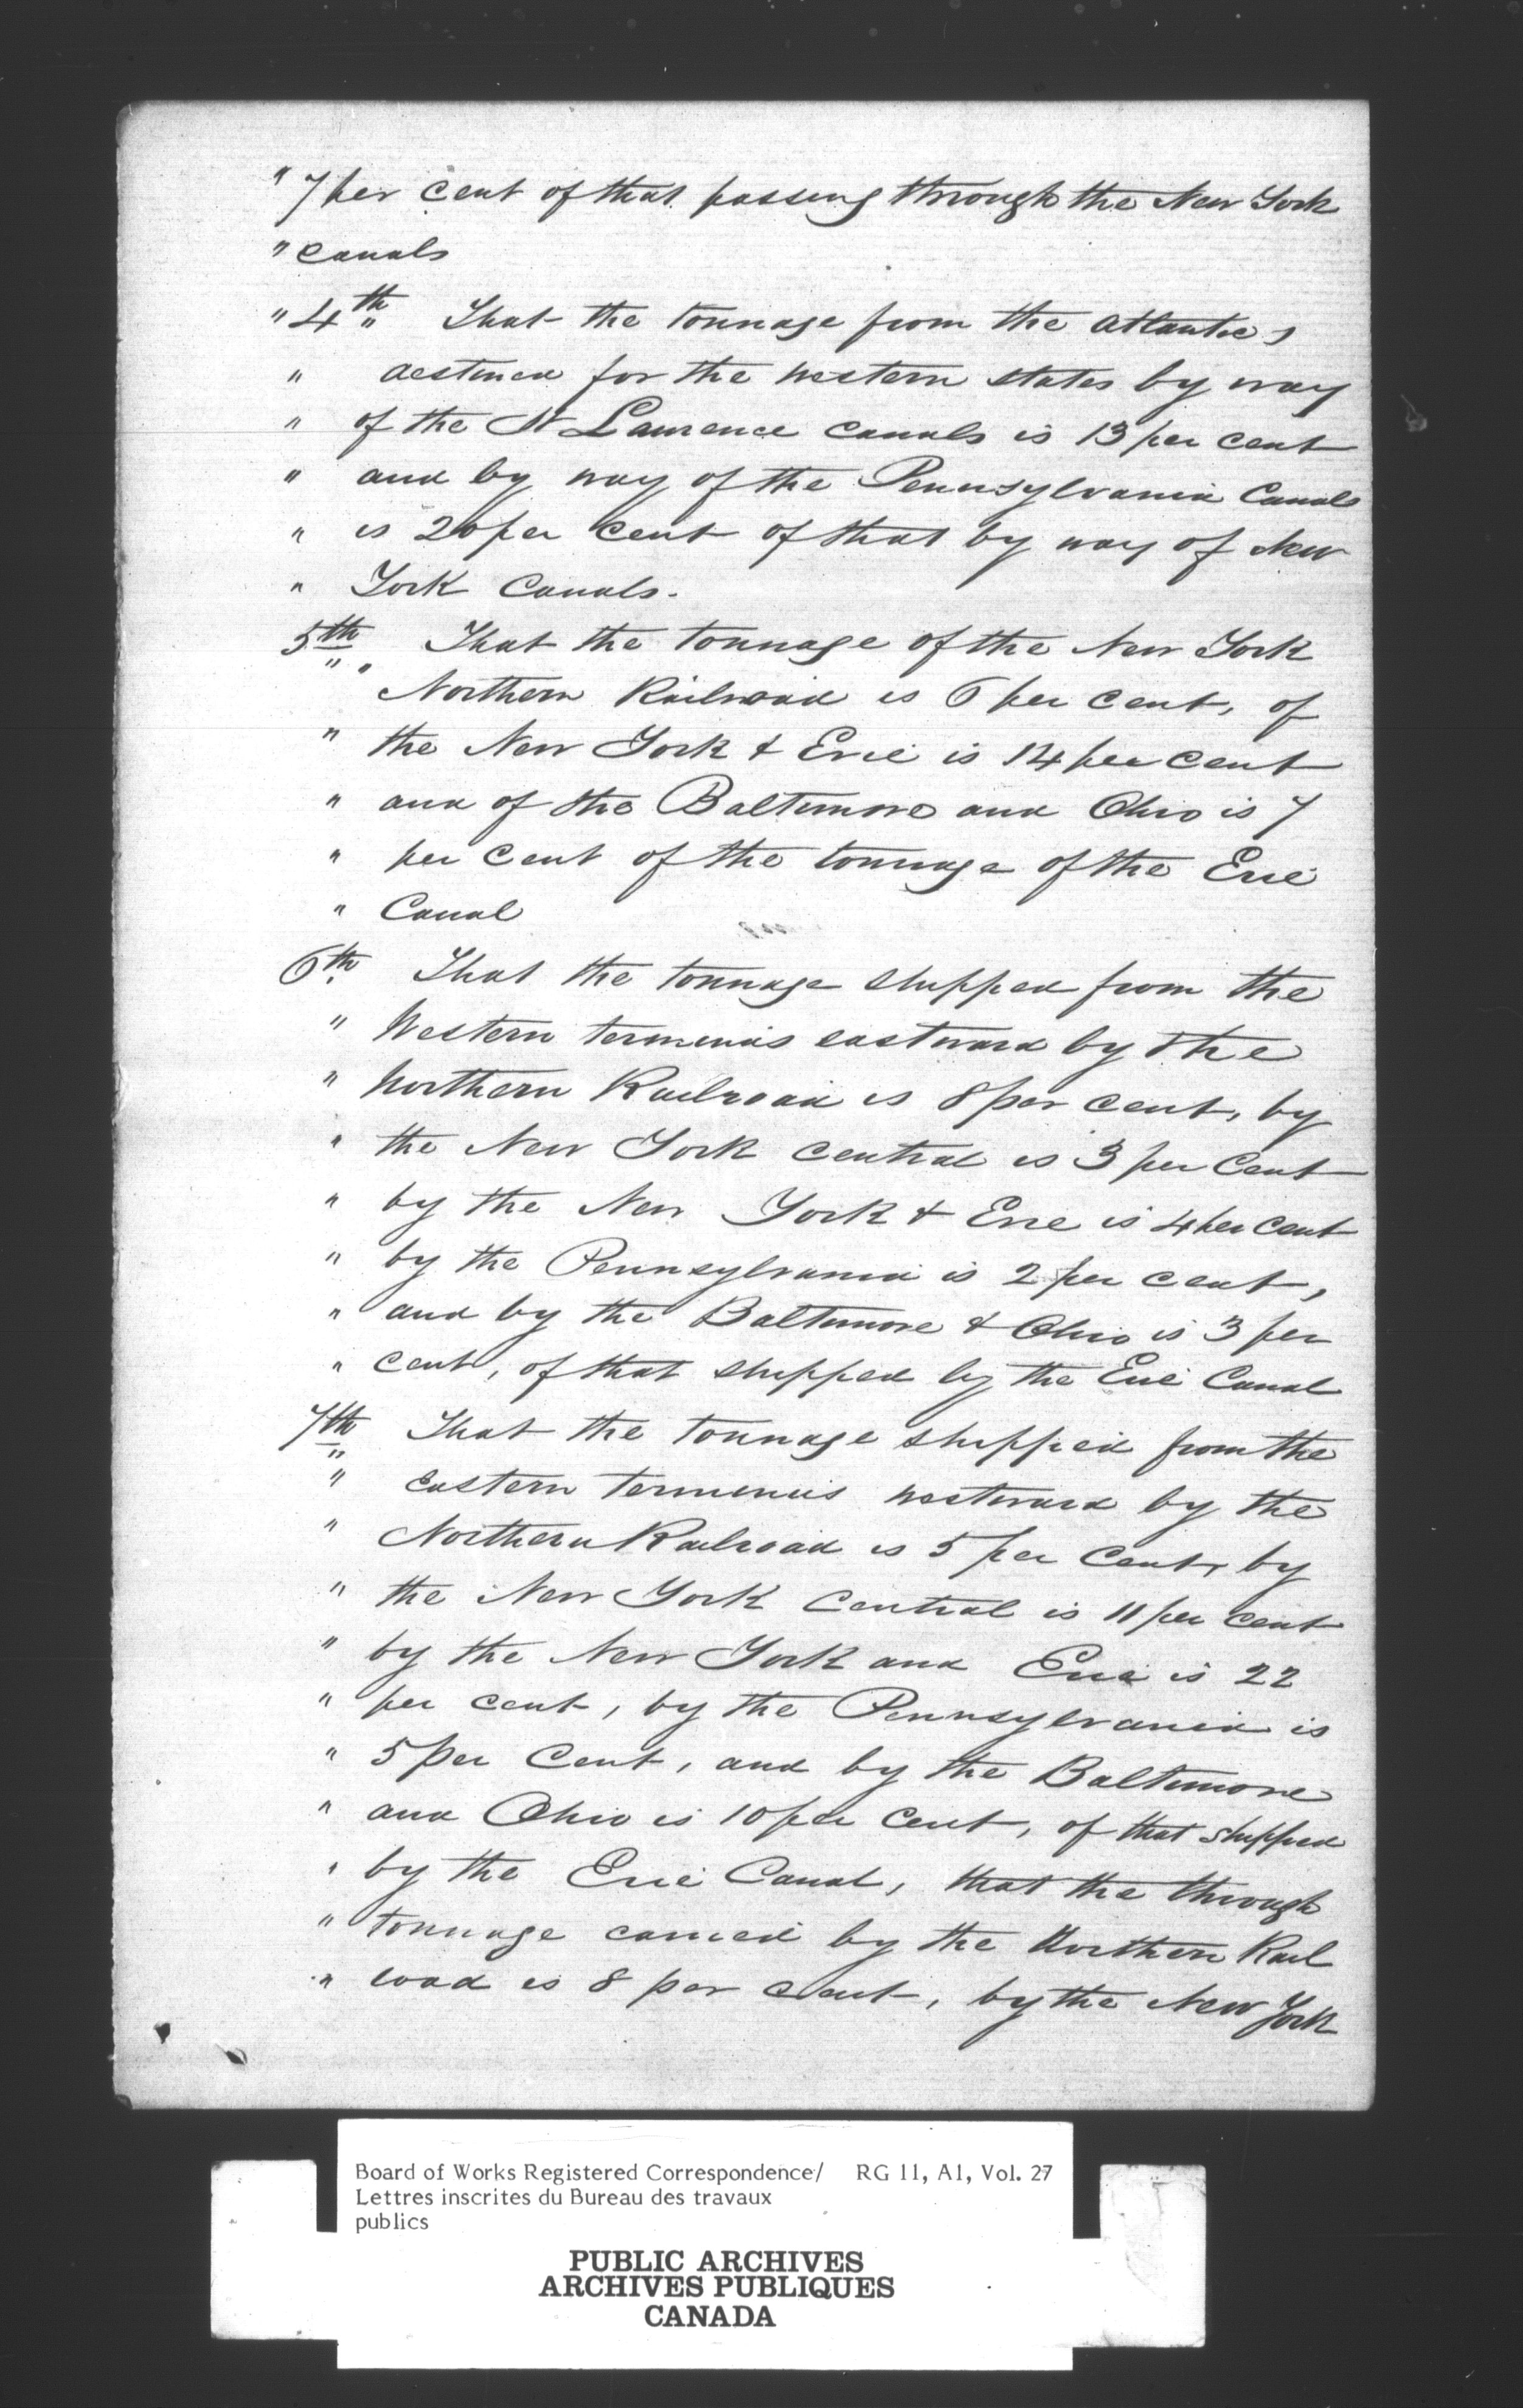 " 7 per cent of that passing through the New York
" canals
" 4th " That the tonnage from the Atlantic,
" destined for the western states by way
" of the St Lawrence canals is 13 per cent
" and by way of the Pennsylvania Canals
" is 20 per cent of that by way of New
" York Canals.
5th " " That the tonnage of the New York
Northern Railroad is 6 per cent, of
" the New York & Erie is 14 per cent
" and of the Baltimore and Ohio is 7
" per cent of the tonnage of the Erie
" Canal
6th. That the tonnage shipped from the
" Western terminus eastward by the
" Northern Railroad is 8 per cent, by
" the New York central is 3 per Cent
" by the New York & Erie is 4 per cent
" by the Pennsylvania is 2 per cent,
" and by the Baltimore & Ohio is 3 per
" cent, of that shipped by the Erie Canal
7th " That the tonnage shipped from the
" Eastern terminus westward by the
" Northern Railroad is 5 per Cent, by
" the New York Central is 11 per cent
" by the New York and Erie is 22
" per cent, by the Pennsylvania is
" 5 per Cent, and by the Baltimore
" and Ohio is 10 per Cent, of that shipped
" by the Erie Canal, that the through
" tonnage carried by the Northern Rail
" road is 8 per cent, by the New York
Board of Works Registered Correspondence/ RG 11, A1, Vol. 27
Lettres inscrites du Bureau des travaux
publics
PUBLIC ARCHIVES
ARCHIVES PUBLIQUES
CANADA